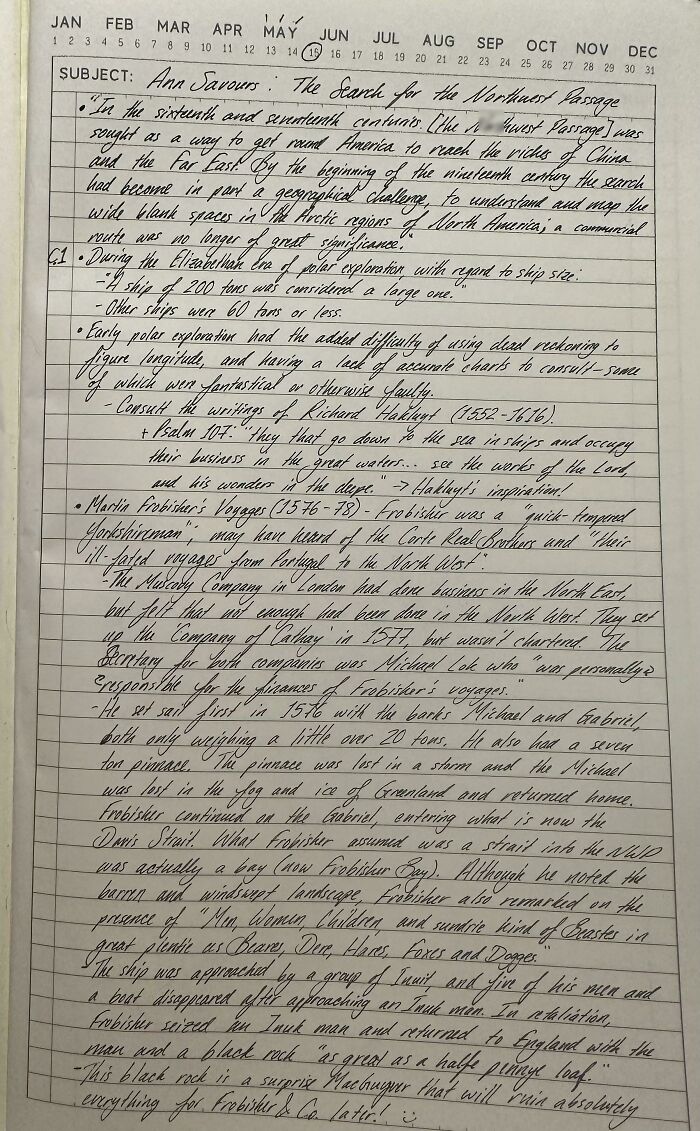 JAN FEB MAR APR MAY JUN JUL AUG SEP OCT NOV DEC
1 2 3 4 5 6 7 8 9 10 11 12 13 14 15 16 17 18 19 20 21 22 23 24 25 26 27 28 29 30 31
SUBJECT: Ann Savours: The Search for the Northwest Passage
• "In the sixteenth and seventeenth centuries [the Passage] was
sought as a way to get round America to reach the riches of China
and the Far East. By the beginning of the nineteenth century the search
had become in part a geographical challenge, to understand and map the
wide blank spaces in the Arctic regions of North America; a commercial
route was no longer of great significance."
C.1 • During the Elizabethan era of polar exploration, with regard to ship size:
- "A ship of 200 tons was considered a large one."
- Other ships were 60 tons or less.
• Early polar exploration had the added difficulty of using dead reckoning to
figure longitude, and having a lack of accurate charts to consult - some
of which were fantastical or otherwise faulty.
- Consult the writings of Richard Hakluyt (1552-1616).
+ Psalm 107: "they that go down to the sea in ships and occupy
their business in the great waters... see the works of the Lord,
and his wonders in the deepe." → Hakluyt's inspiration!
• Martin Frobisher's Voyages (1576-78) - Frobisher was a "quick-tempered
Yorkshireman"; may have heard of the Corte Real Brothers and "their
ill-fated voyages from Portugal to the North West".
- The Muscovy Company in London had done business in the North East,
but felt that not enough had been done in the North West. They set
up the 'Company of Cathay' in 1577, but wasn't chartered. The
Secretary for both companies was Michael Lok who "was personally
responsible for the finances of Frobisher's voyages."
- He set sail first in 1576 with the barks Michael and Gabriel,
both only weighing a little over 20 tons. He also had a seven
ton pinnace. The pinnace was lost in a storm and the Michael
was lost in the fog and ice of Greenland and returned home.
Frobisher continued on the Gabriel, entering what is now the
Davis Strait. What Frobisher assumed was a strait into the NWP
was actually a bay (now Frobisher Bay). Although he noted the
barren and windswept landscape, Frobisher also remarked on the
presence of "Men, Women, Children, and sundrie kind of Beastes in
great plentie as Beares, Dere, Hares, Foxes and Dogges."
- The ship was approached by a group of Inuit, and five of his men and
a boat disappeared after approaching an Inuk man. In retaliation,
Frobisher seized an Inuk man and returned to England with the
man and a black rock "as great as a halfe pennye loaf."
- This black rock is a surprise MacGuyver that will ruin absolutely
everything for Frobisher & Co. later! :)